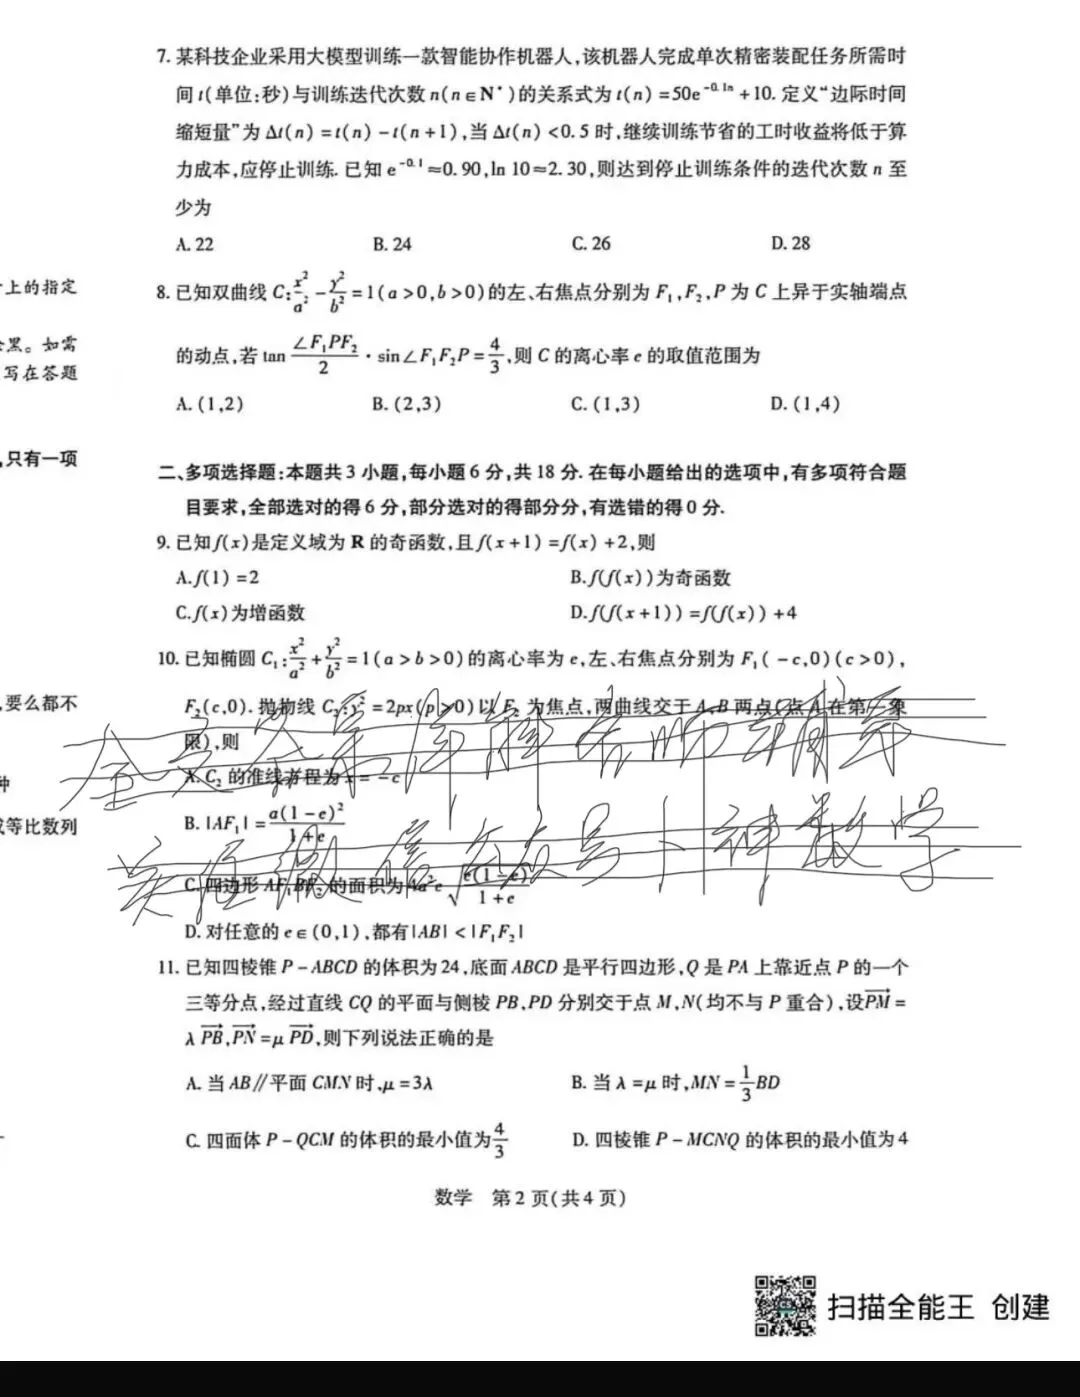 7. 某科技企业采用大模型训练一款智能协作机器人,该机器人完成单次精密装配任务所需时
间 t(单位:秒)与训练迭代次数 n(n∈N*)的关系式为 t(n)=50e^{-0.1n}+10. 定义“边际时间
缩短量”为 Δt(n)=t(n)-t(n+1),当 Δt(n)<0.5 时,继续训练节省的工时收益将低于算
力成本,应停止训练. 已知 e^{-0.1}≈0.90,ln 10≈2.30,则达到停止训练条件的迭代次数 n 至
少为
A. 22 B. 24 C. 26 D. 28
上的指定
8. 已知双曲线 C: x²/a² - y²/b² =1(a>0,b>0)的左、右焦点分别为 F₁,F₂,P 为 C 上异于实轴端点
黑。如需
的动点,若 tan ∠F₁PF₂/2 · sin∠F₁F₂P = 4/3,则 C 的离心率 e 的取值范围为
写在答题
A. (1,2) B. (2,3) C. (1,3) D. (1,4)
,只有一项
二、多项选择题:本题共 3 小题,每小题 6 分,共 18 分. 在每小题给出的选项中,有多项符合题
目要求,全部选对的得 6 分,部分选对的得部分分,有选错的得 0 分.
9. 已知 f(x)是定义域为 R 的奇函数,且 f(x+1)=f(x)+2,则
A. f(1)=2 B. f(f(x))为奇函数
C. f(x)为增函数 D. f(f(x+1))=f(f(x))+4
10. 已知椭圆 C₁: x²/a² + y²/b² =1(a>b>0)的离心率为 e,左、右焦点分别为 F₁(-c,0)(c>0),
,要么都不
F₂(c,0). 抛物线 C₂:y²=2px(p>0)以 F₂ 为焦点,两曲线交于 A,B 两点(点 A 在第一象
限),则
A. C₂ 的准线方程为 x=-c
种
B. |AF₁| = a(1-e)²/1+e
等比数列
C. 四边形 AF₁BF₂ 的面积为 4a²e √(e(1-e)/1+e)
D. 对任意的 e∈(0,1),都有|AB|<|F₁F₂|
11. 已知四棱锥 P-ABCD 的体积为 24,底面 ABCD 是平行四边形,Q 是 PA 上靠近点 P 的一个
三等分点,经过直线 CQ 的平面与侧棱 PB,PD 分别交于点 M,N(均不与 P 重合),设 PM→ =
λ PB→, PN→ = μ PD→,则下列说法正确的是
A. 当 AB∥平面 CMN 时,μ=3λ B. 当 λ=μ 时,MN = 1/3 BD
C. 四面体 P-QCM 的体积的最小值为 4/3 D. 四棱锥 P-MCNQ 的体积的最小值为 4
数学 第 2 页(共 4 页)
扫描全能王 创建